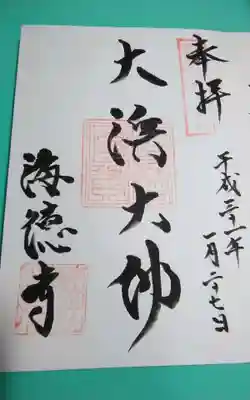 奉拝
平成三十一年
一月二十七日
大浜大仏
海徳寺